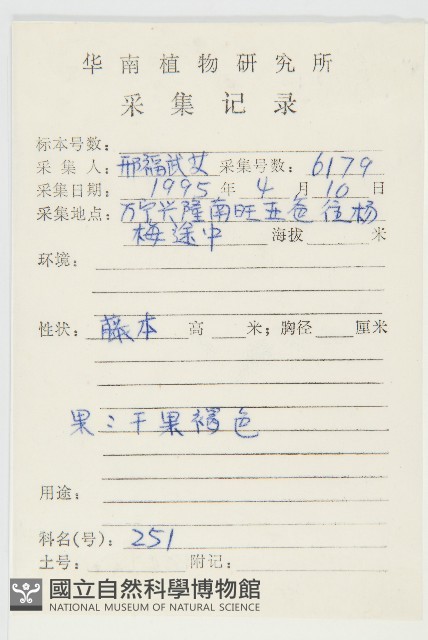 华南植物研究所
采集记录
标本号数:
采集人: 邢福武 采集号数: 6179
采集日期: 1995年 4月 10日
采集地点: 万宁兴隆南旺五爸往杨
梅途中 海拔 米
环境:
性状: 藤本 高 米; 胸径 厘米
果: 干果褐色
用途:
科名(号): 251
土号: 附记:
國立自然科學博物館
NATIONAL MUSEUM OF NATURAL SCIENCE